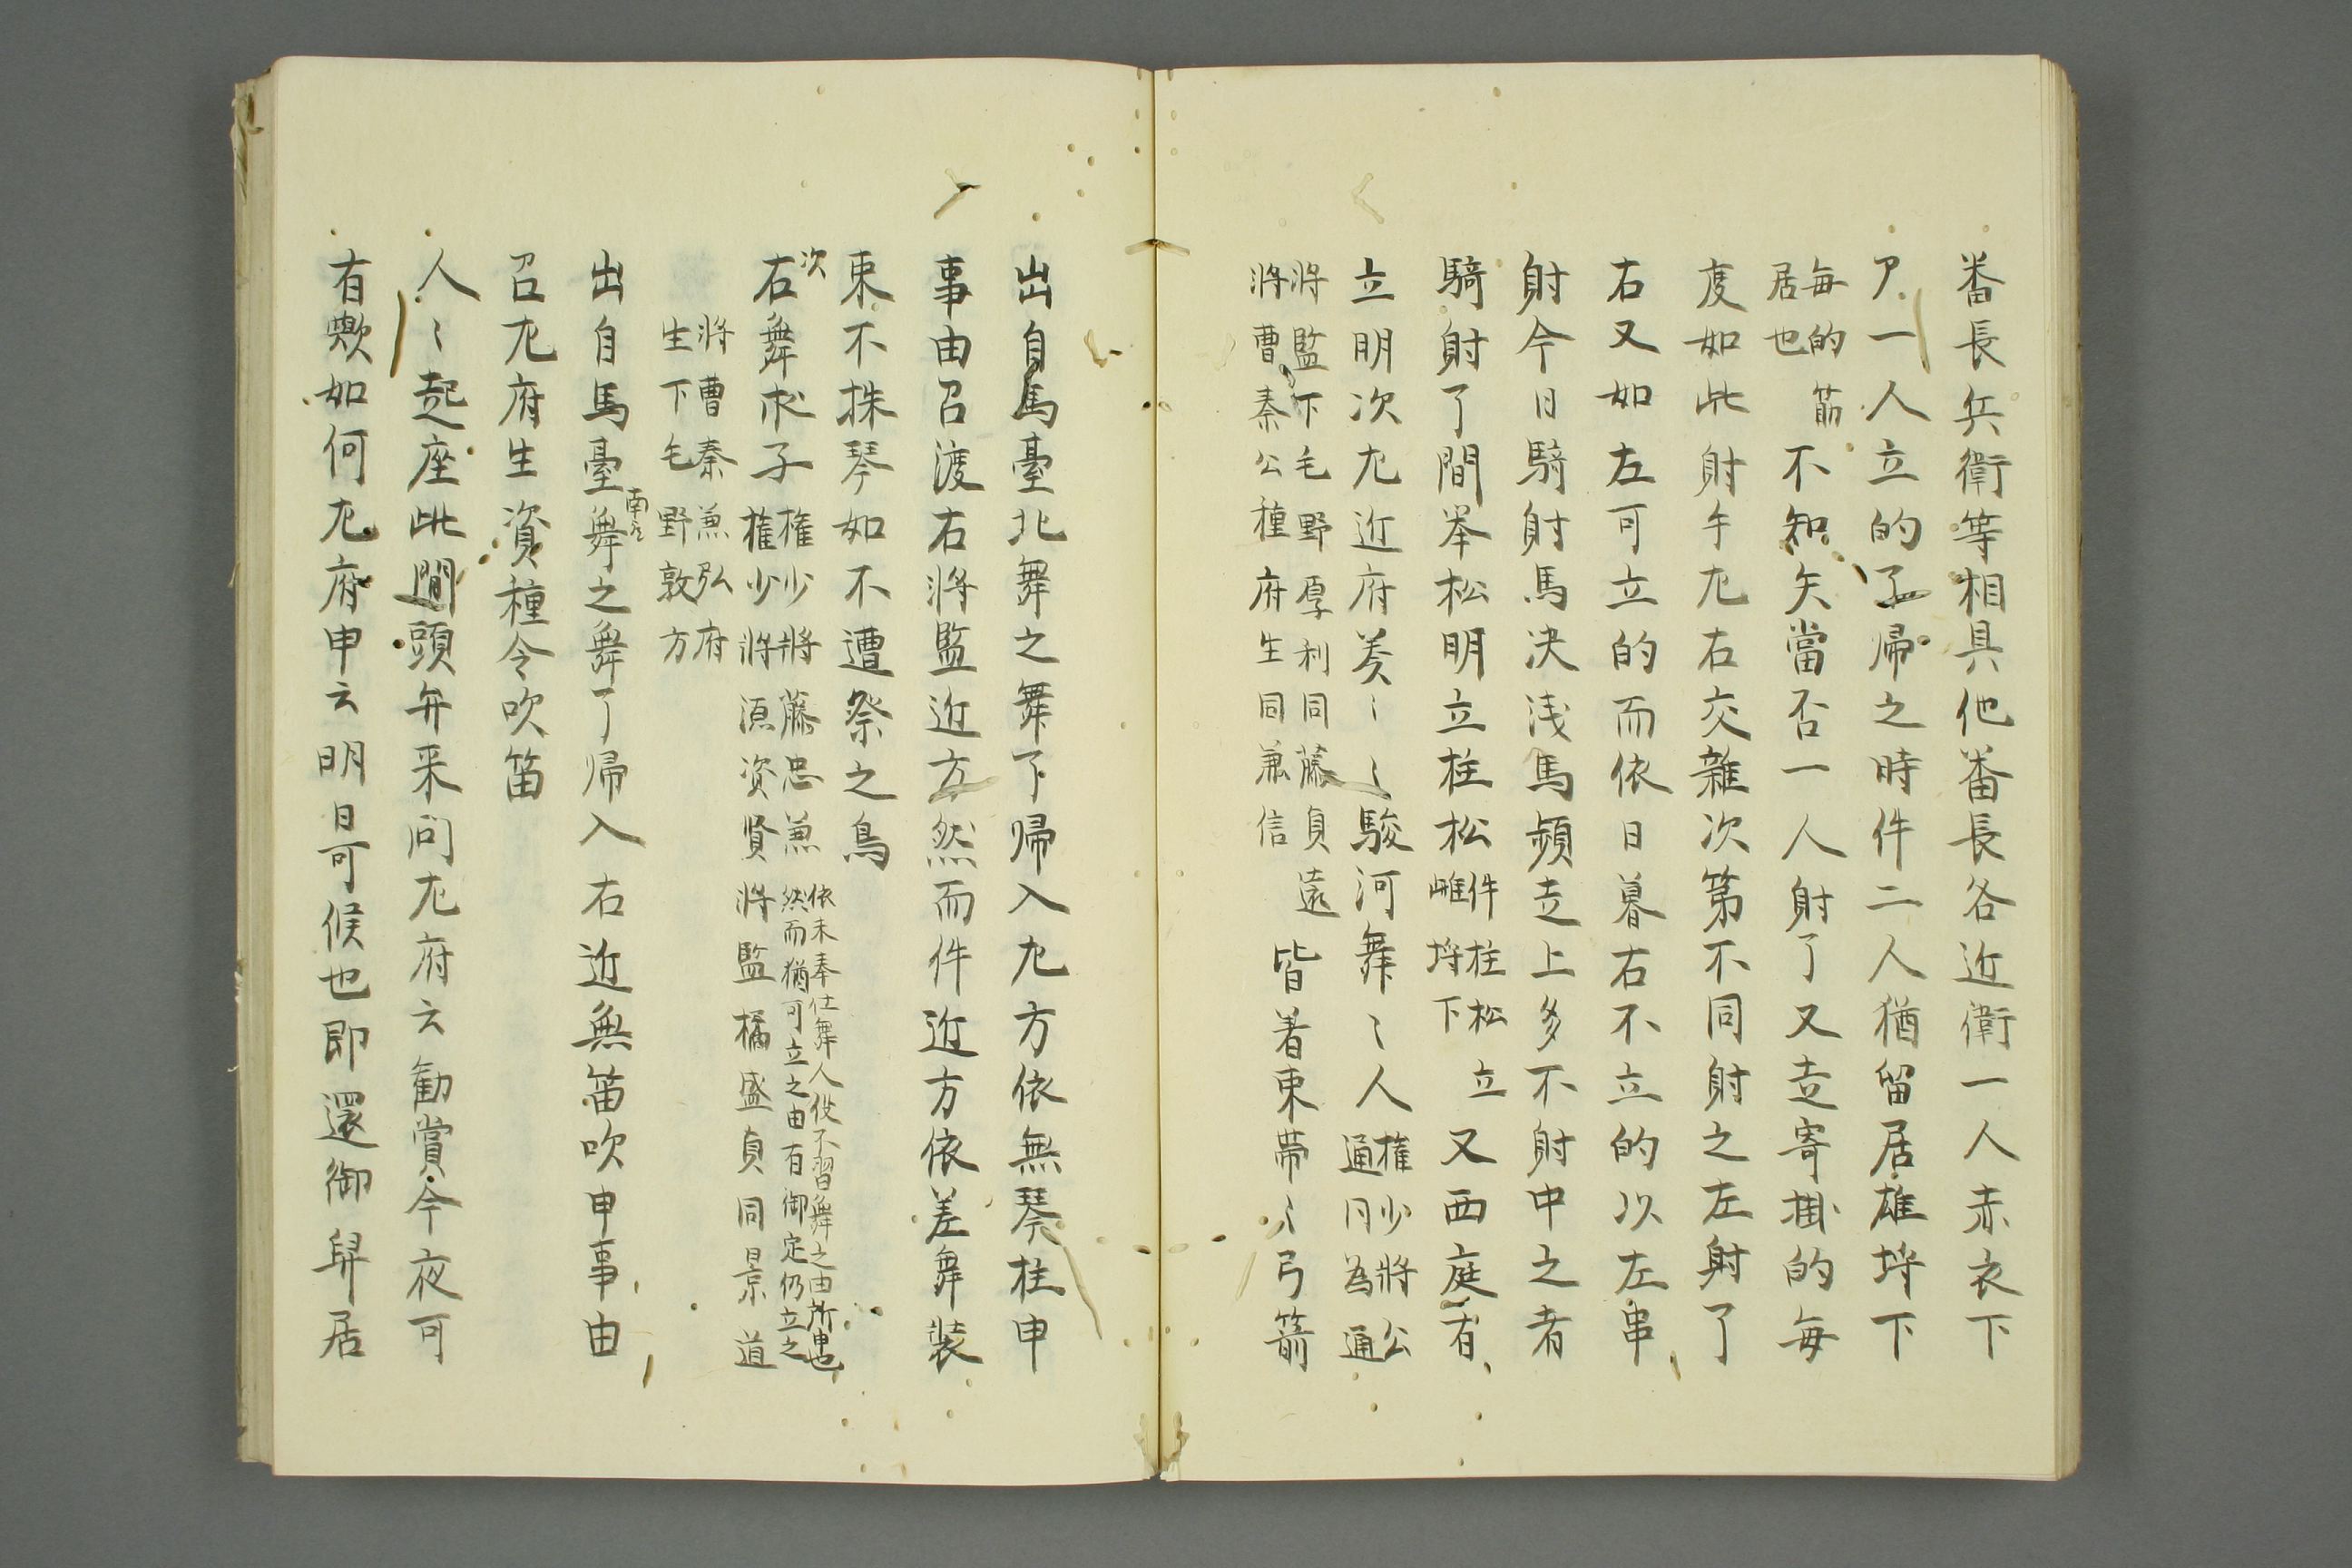 番長兵衛等相具他番長各近衛一人赤衣下
卩一人立的了帰之時件二人猶留居雄埓下
毎的筋
居也
不知矢當否一人射了又走寄掛的毎
度如此射手尢右交雑次第不同射之左射了
右又如左可立的而依日暮右不立的以左串
射今日騎射射馬決浅馬頻走上多不射中之者
騎射了間举松明立柱松
件柱松立
雌埓下
又西庭有
立明次尢近府差〻〻駿河舞〻人
権少将公
通同為通
将監下毛野厚利同藤貞遠
将曹秦公種府生同兼信
皆着束帯〻弓箭
出自馬臺北舞之舞下帰入尢方依無琴柱申
事由召渡右将監近方然而件近方依差舞装
束不採琴如不遭祭之鳥
次
右舞求子
権少将藤忠兼
依未奉仕舞人役不習舞之由所申也
然而猶可立之由有御定仍立之
権少将源資賢将監橘盛貞同景道
将曹秦兼弘府
生下毛野敦方
出自馬臺南舞之舞了帰入右近無笛吹申事由
召尢府生資種令吹笛
人〻起座此間頭弁来问尢府云勧賞今夜可
有歟如何尢府申云明日可候也即還御舁居